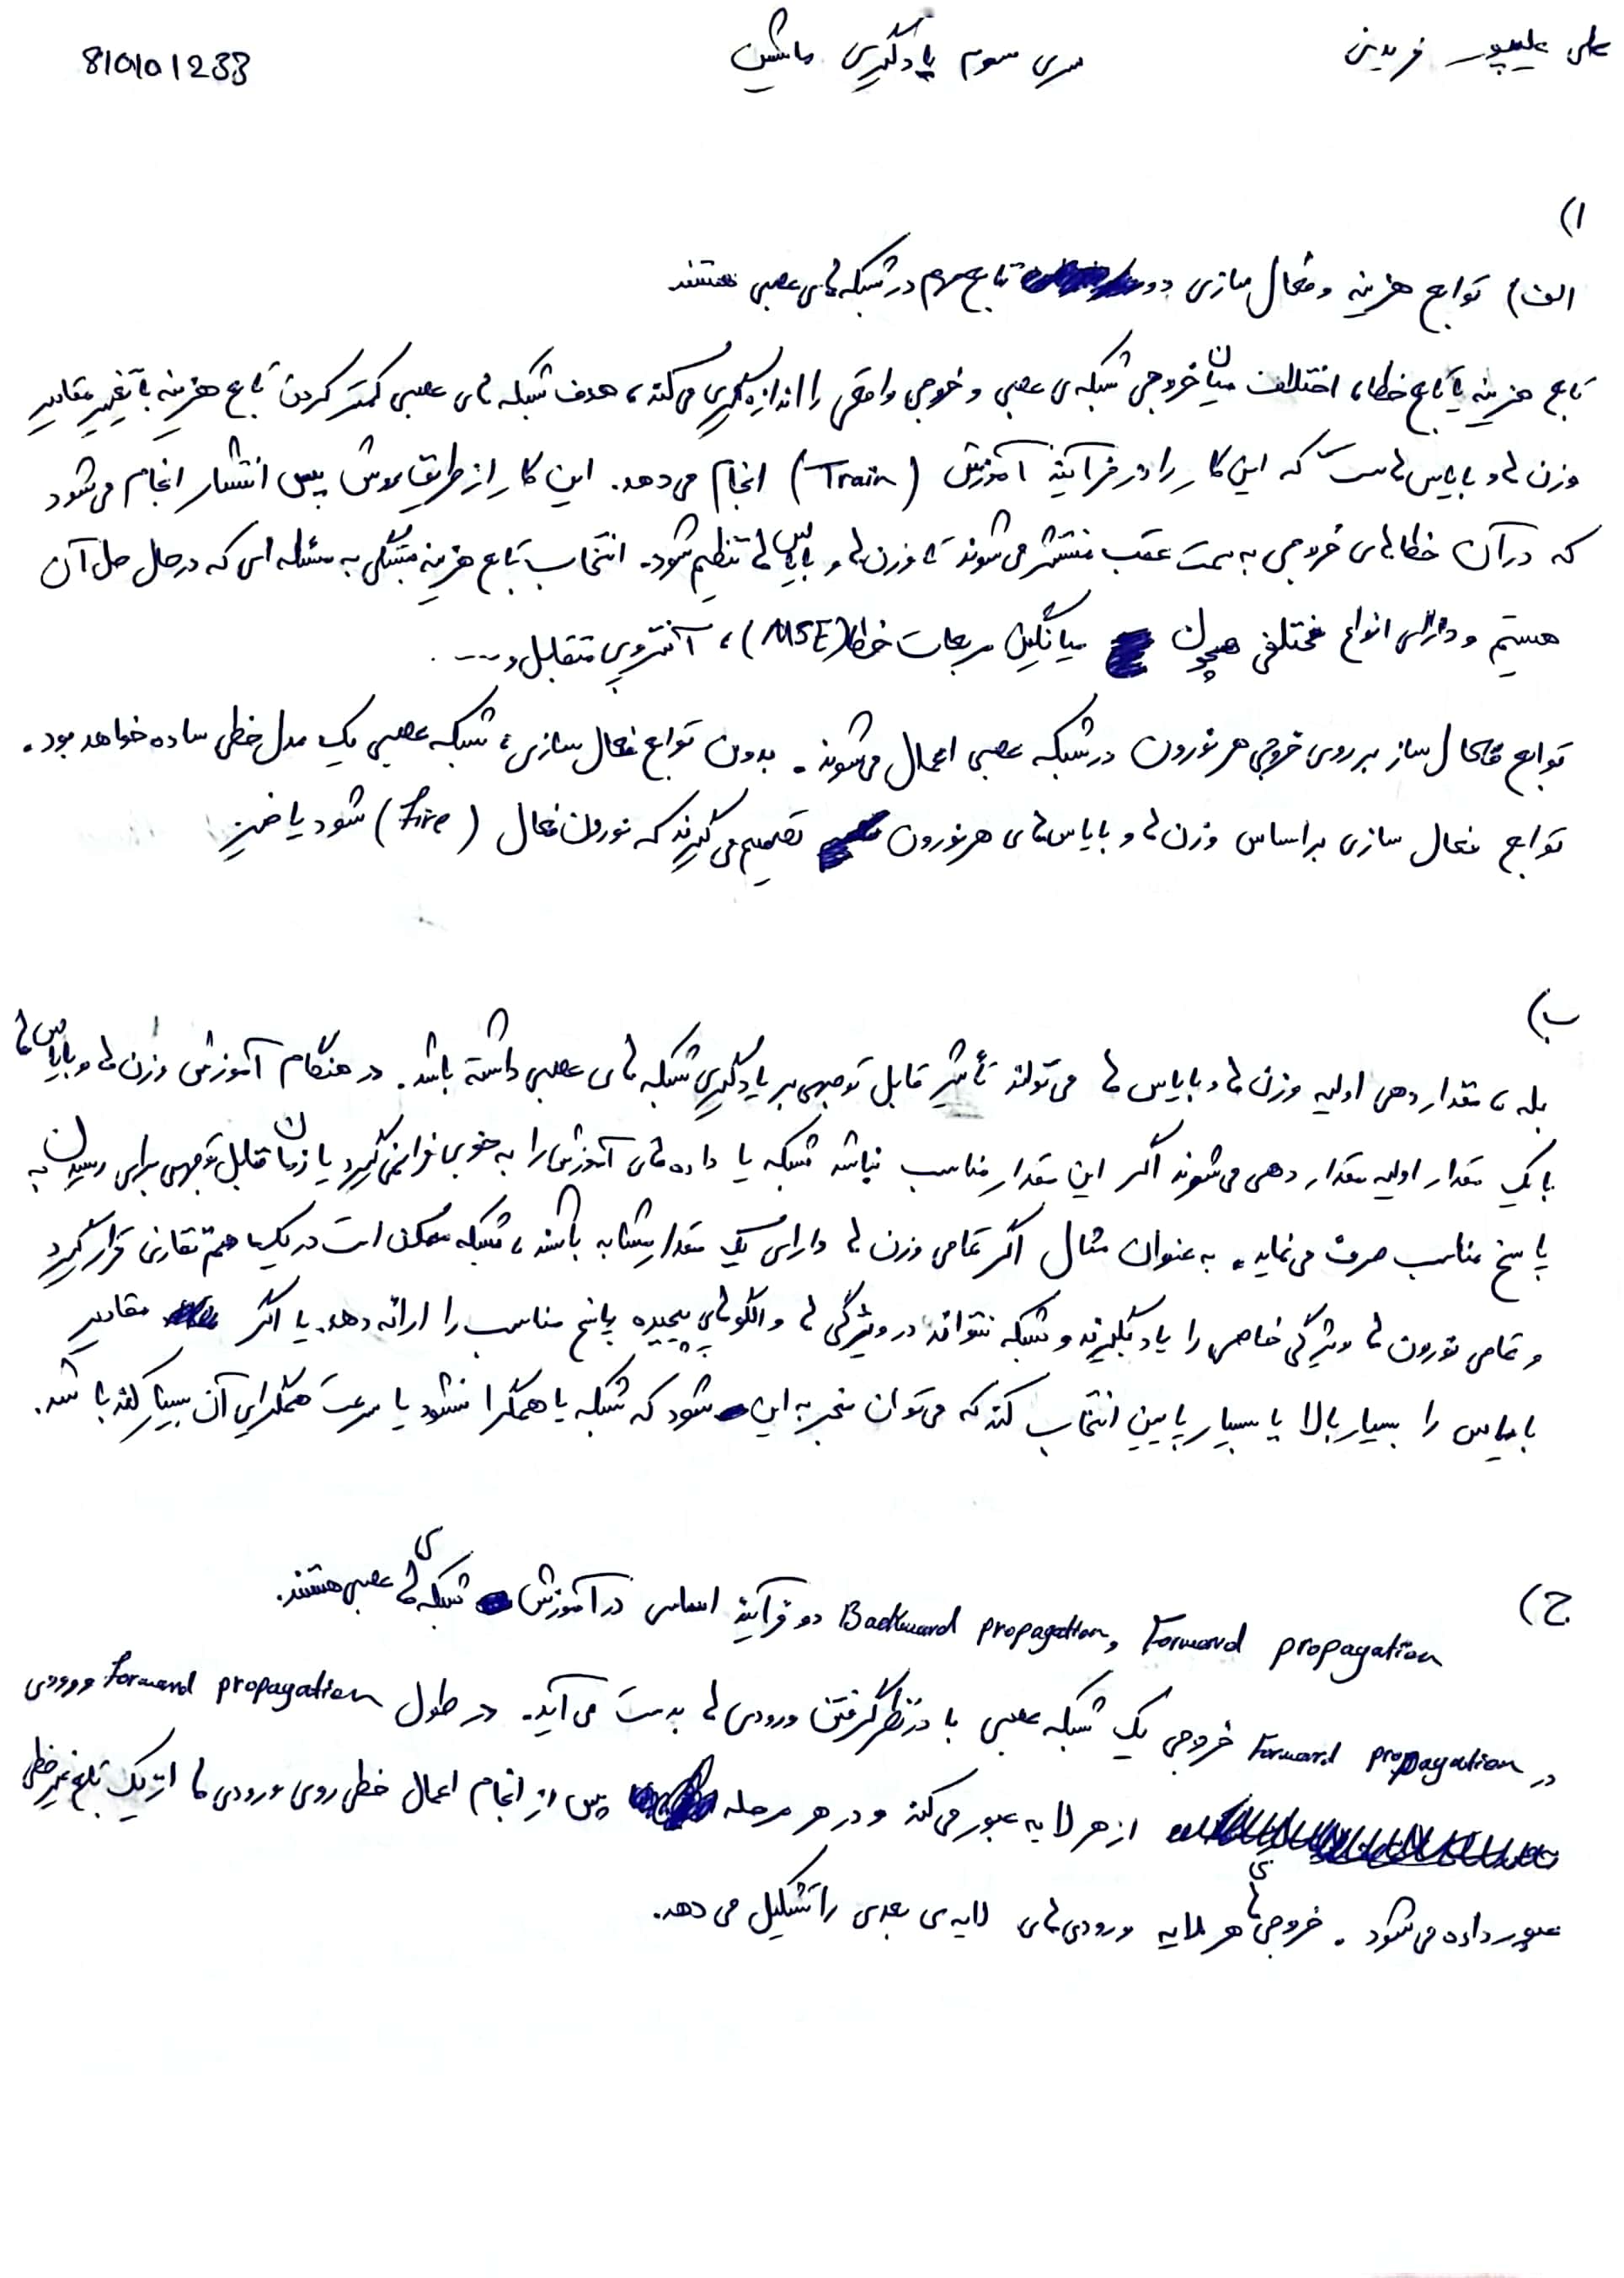 علی علیپور فریدنی
سری سوم یادگیری ماشین
810101233
۱)
الف) توابع هزینه و فعال سازی دو تابع مهم در شبکه های عصبی هستند
تابع هزینه یا تابع خطا، اختلاف میان خروجی شبکه ی عصبی و خروجی واقعی را اندازه گیری می کند، هدف شبکه های عصبی کمتر کردن تابع هزینه با تغییر مقادیر
وزن ها و بایاس هاست که این کار را در فرآیند آموزش (Train) انجام می دهد. این کار از طریق روش پس انتشار انجام می شود
که در آن خطاهای خروجی به سمت عقب منتشر می شوند تا وزن ها و بایاس ها تنظیم شود. انتخاب تابع هزینه بستگی به مسئله ای که در حال حل آن
هستیم و دارای انواع مختلفی همچون میانگین مربعات خطا (MSE)، آنتروپی متقابل و .... .
توابع فعال ساز بر روی خروجی هر نورون در شبکه عصبی اعمال می شوند. بدون توابع فعال سازی، شبکه عصبی یک مدل خطی ساده خواهد بود.
توابع فعال سازی براساس وزن ها و بایاس های هر نورون تصمیم می گیرند که نورون فعال (Fire) شود یا خیر
ب)
بله، مقدار دهی اولیه وزن ها و بایاس ها می تواند تأثیر قابل توجهی بر یادگیری شبکه های عصبی داشته باشد. در هنگام آموزش وزن ها و بایاس ها
با یک مقدار اولیه مقدار دهی می شوند اگر این مقدار مناسب نباشد شبکه یا داده های آموزش را به خوبی فرا نمی گیرد یا زمان قابل توجهی برای رسیدن به
پاسخ مناسب صرف می نماید. به عنوان مثال اگر تمامی وزن ها دارای یک مقدار مشابه باشند، شبکه ممکن است در یک تقارن قرار گیرد
و تمامی نورون ها ویژگی خاصی را یاد بگیرند و شبکه نتواند در ویژگی ها و الگوهای پیچیده پاسخ مناسب را ارائه دهد. یا اگر مقادیر
بایاس را بسیار بالا یا بسیار پایین انتخاب کند که می توان منجر به این شود که شبکه یا همگرا نشود یا سرعت همگرایی آن بسیار کند باشد.
ج)
Forward propagation و Backward propagation دو فرآیند اساسی در آموزش شبکه های عصبی هستند.
در Forward propagation خروجی یک شبکه عصبی با در نظر گرفتن ورودی ها بدست می آید. در طول Forward propagation ورودی
از هر لایه عبور می کند و در هر مرحله پس از انجام اعمال خطی روی ورودی ها از یک تابع غیر خطی
عبور داده می شود. خروجی های هر لایه ورودی های لایه ی بعدی را تشکیل می دهد.